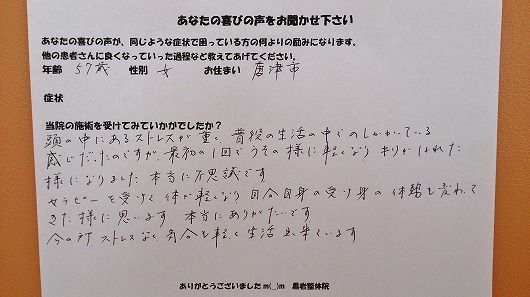 あなたの喜びの声をお聞かせ下さい
あなたの喜びの声が、同じような症状で困っている方の何よりの励みになります。
他の患者さんに良くなっていった過程など教えてあげてください。
年齢 57歳 性別 女 お住まい 唐津市
症状
当院の施術を受けてみていかがでしたか?
頭の中にあるストレスが重く、普段の生活の中でのしかかっている
感じだったのですが、最初の1回でうその様に軽くなり 霧がはれた
様になりました 本当に不思議です
セラピーを受けて 体が軽くなり 自分自身の受け身の体勢も変わって
きた様に思います 本当にありがたいです
今の所 ストレスなく 気分も軽く 生活出来ています
ありがとうございました m(__)m 黒岩整体院